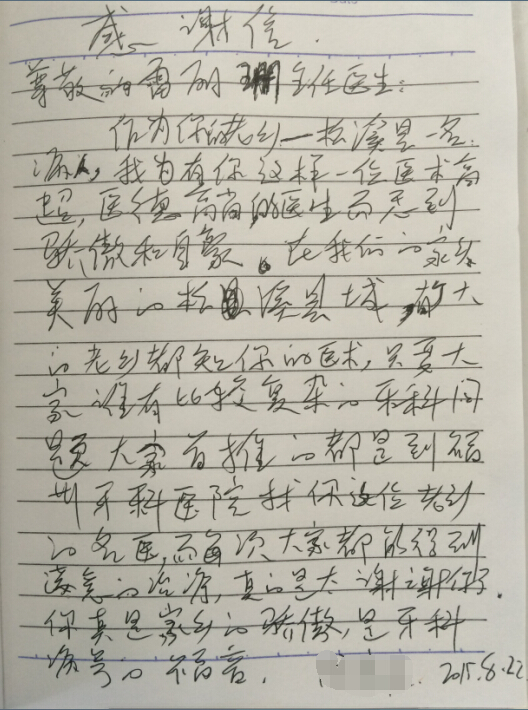 感谢信.
尊敬的雷丽 主任医生:
作为你的老乡一松溪县一名
病人, 我为有你这样一位医术高
超, 医德高尚的医生而感到
骄傲和自豪。在我们的家乡
美丽的松溪县城,
的老乡都知你的医术, 只要大
家谁有比较复杂的牙科问
题大家首推的都是到福
州牙科医院找你这位老乡
的名医, 而每次大家都能得到
满意的治疗, 真的是太谢谢你了.
你真是家乡的骄傲, 是牙科
病号的福音. 2015.8.22